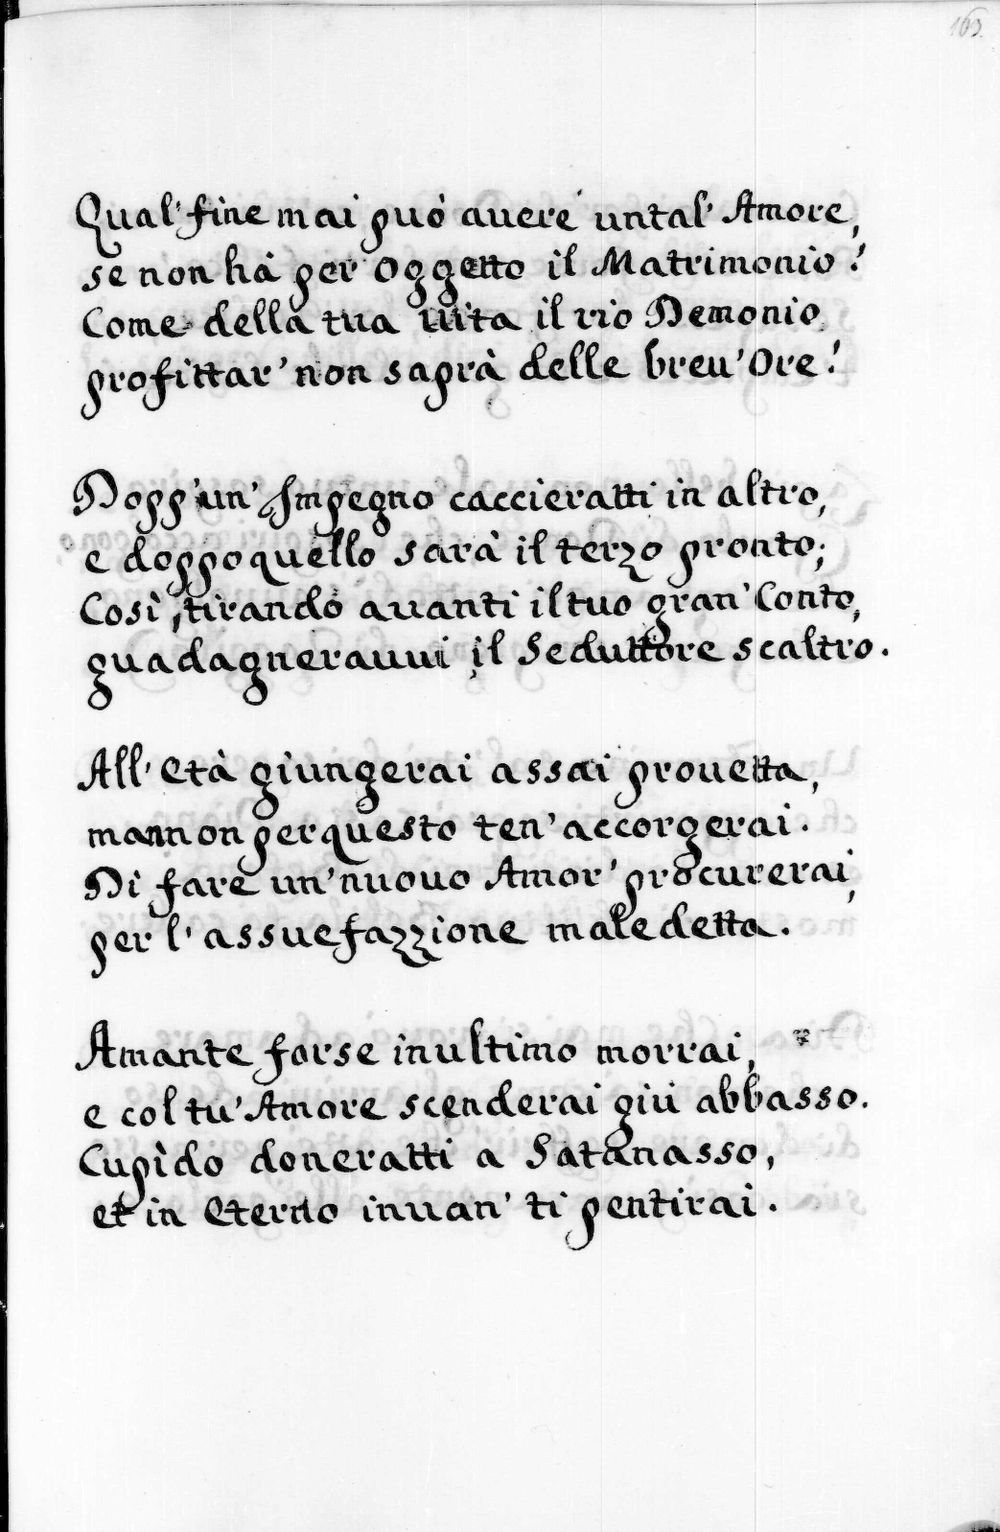 Qual' fine mai può auere untal' Amore,
se non hà per oggetto il Matrimonio?
Come della tua uita il rio Demonio
profittar' non saprà delle breu' Ore?
Dopp'un' Impegno caccieratti in altro,
e doppo quello sarà il terzo pronto;
Così, tirando auanti il tuo gran' Conto,
guadagnerauui il Seduttore scaltro.
All' età giungerai assai prouetta,
ma non per questo ten' accorgerai.
Di fare un' nuouo Amor' procurerai,
per l' assuefazzione maledetta.
Amante forse in ultimo morrai,
e col tu' Amore scenderai giù abbasso.
Cupìdo doneratti a Satanasso,
et in eterno inuan' ti pentirai.